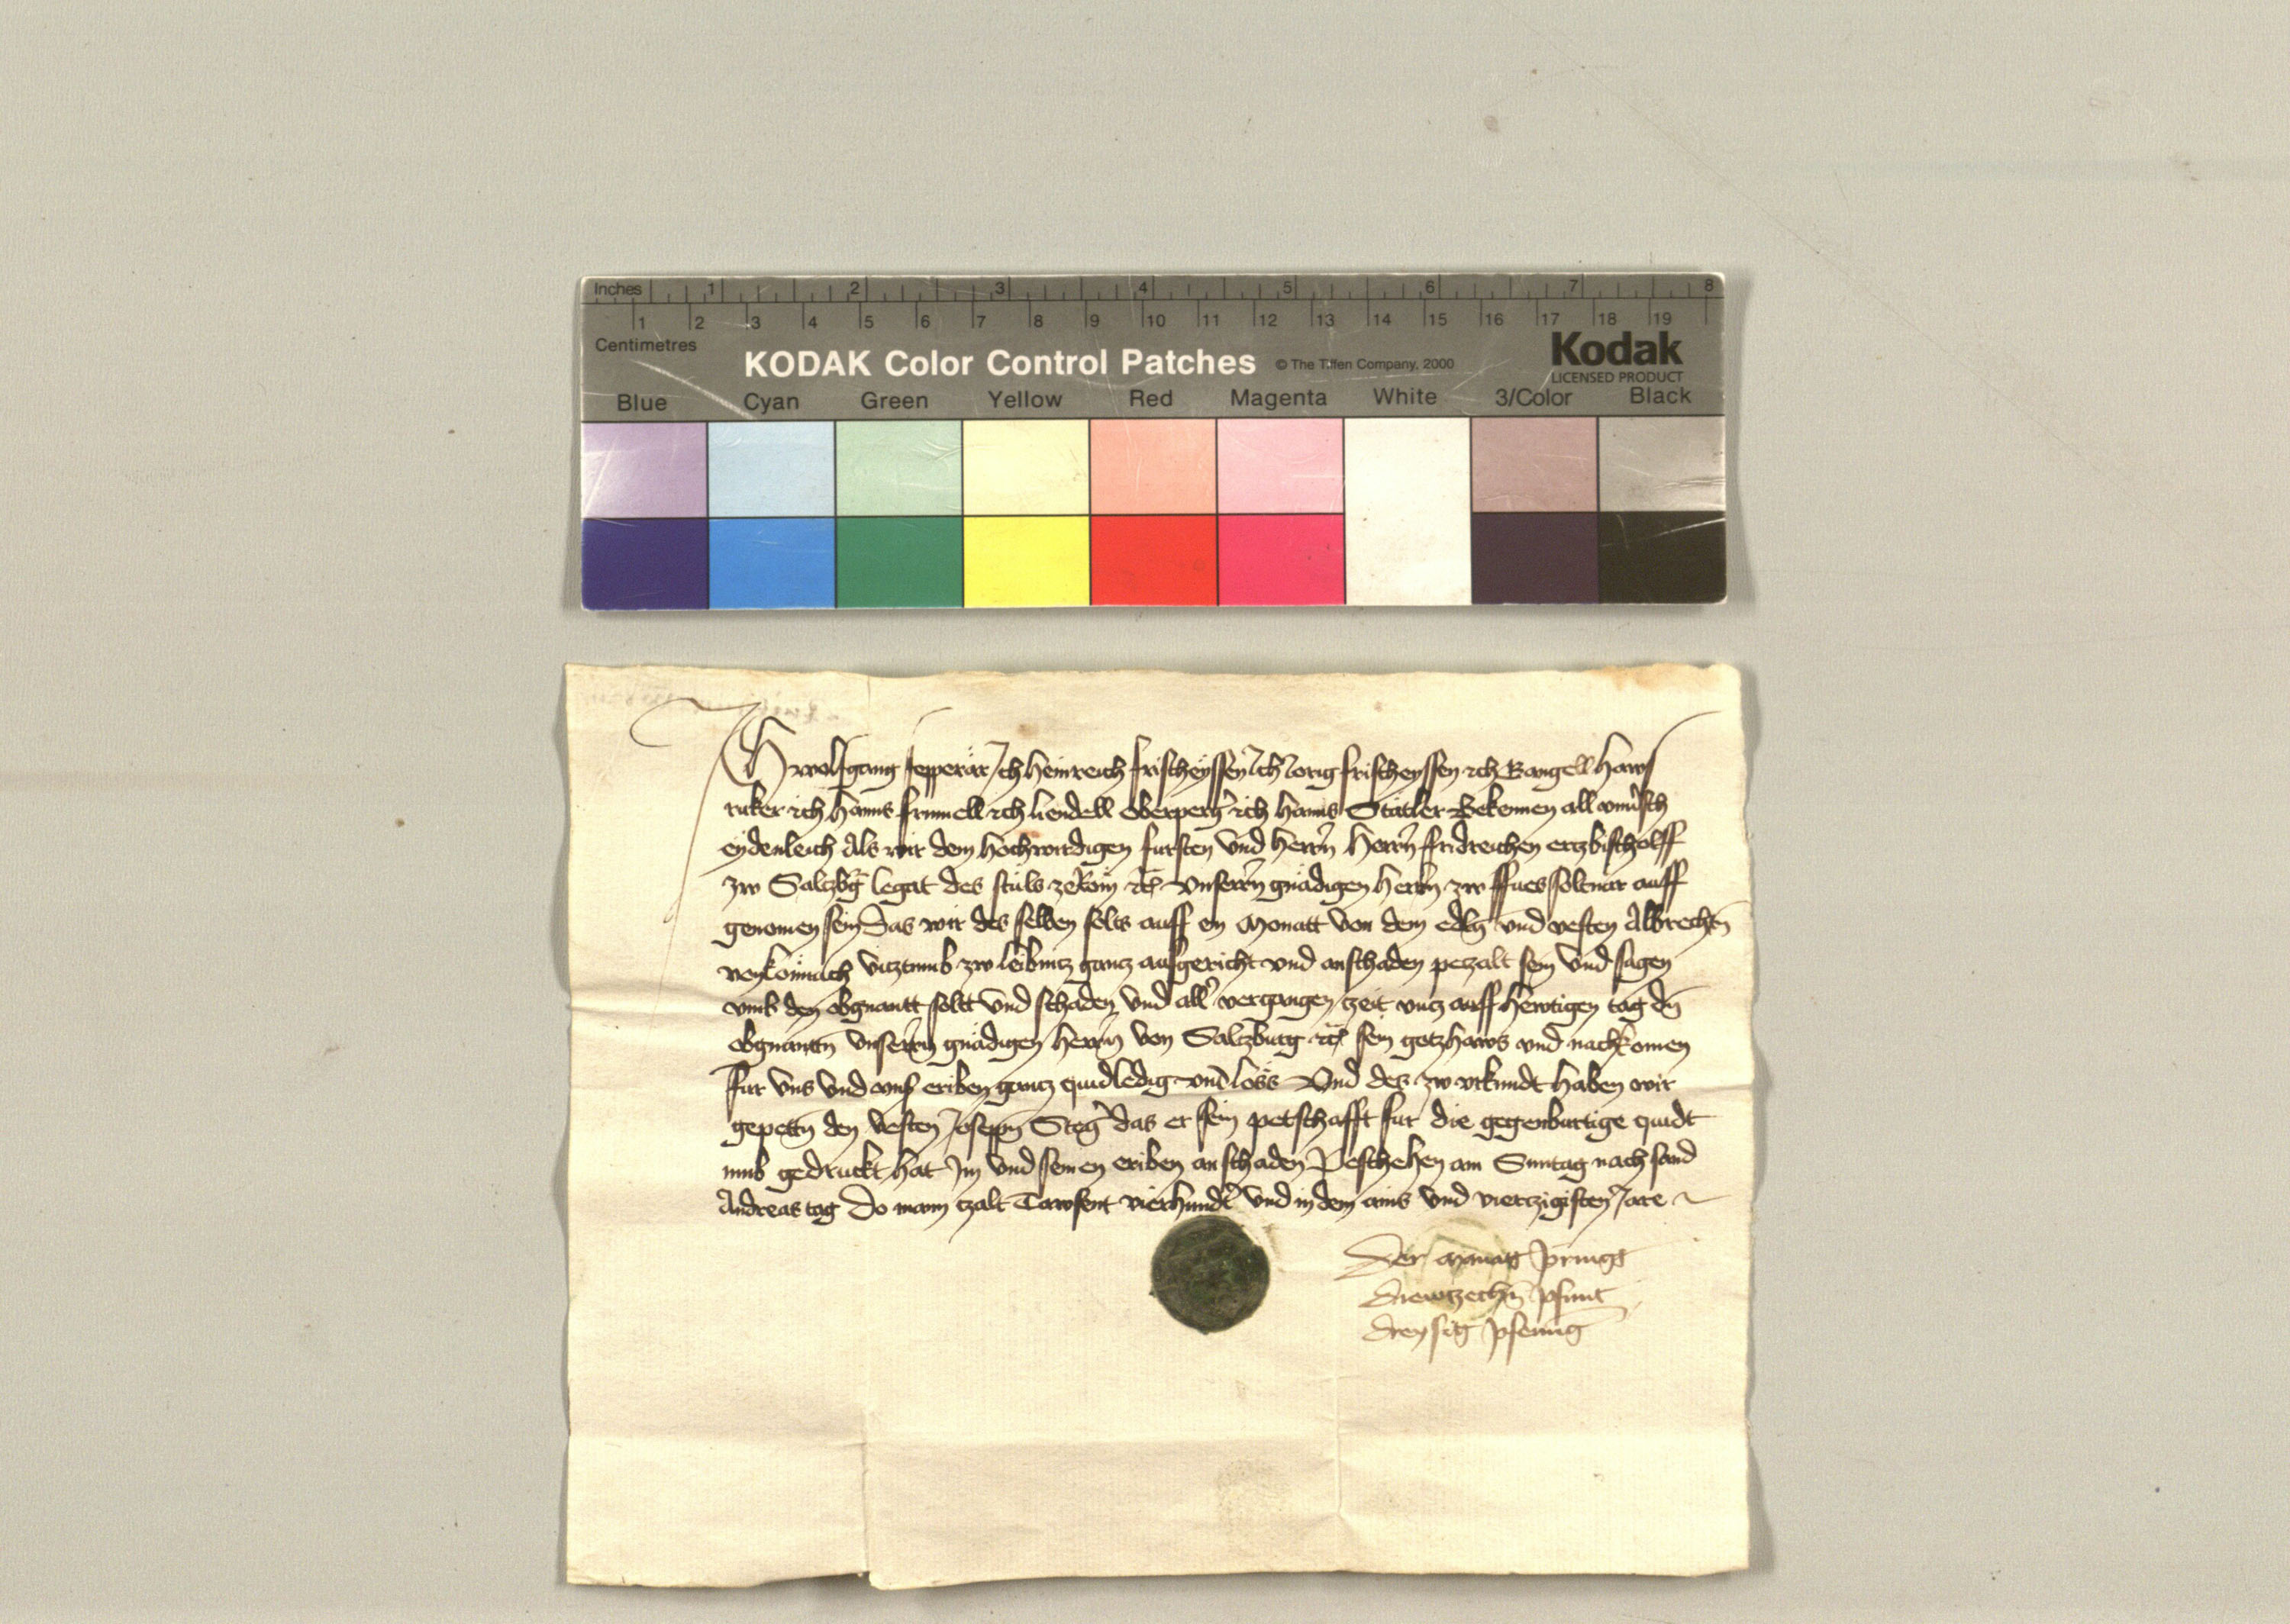 Inches 1 2 3 4 5 6 7 8
1 2 3 4 5 6 7 8 9 10 11 12 13 14 15 16 17 18 19
Centimetres
KODAK Color Control Patches © The Tiffen Company, 2000 Kodak
LICENSED PRODUCT
Blue Cyan Green Yellow Red Magenta White 3/Color Black
Ich wolfgang ich heinreich frischeyssen ich Jorig frischeyssen ich haws
ich hanns ich liendell oberperg ich hanns Stättler Bekennen all
eydenleich Als wir dem hochwirdigen fursten vnd herrn herrn fridreichen ertzbischolff
zw Salzbg legat des stuls ze Rom etc vnserrn gnädigen herrn zw fues soltnar auff
genomen sein Das wir des selben solts auff en Monatt von dem edlen vnd vesten Albrechten
viztumb zw leibnicz gancz ausgericht vnd an schaden peczalt sein vnd sagen
vmb den obgnantt soltt vnd schaden vnd all vergangen zeit vncz auff hewtigen tag den
obgnantn vnserrn gnädigen herrn von Salczburg etc sein gotzhaws vnd nachkomen
fur vns vnd vns eriben gancz quidledig vnd loss Vnd des zw vrkundt haben wir
gepettn den vesten Josepn Steg das er sein petschafft fur die gegenburtige quidt
umb gedruckt hat Im vnd seinen eriben an schaden Geschehen am Suntag nach sand
Andreas tag Do mann czalt Tawsent vierhundt vnd in dem ains vnd vierczigisten Jare
Der manatt pringt
drewtzechn pfunt
dreysig pfening